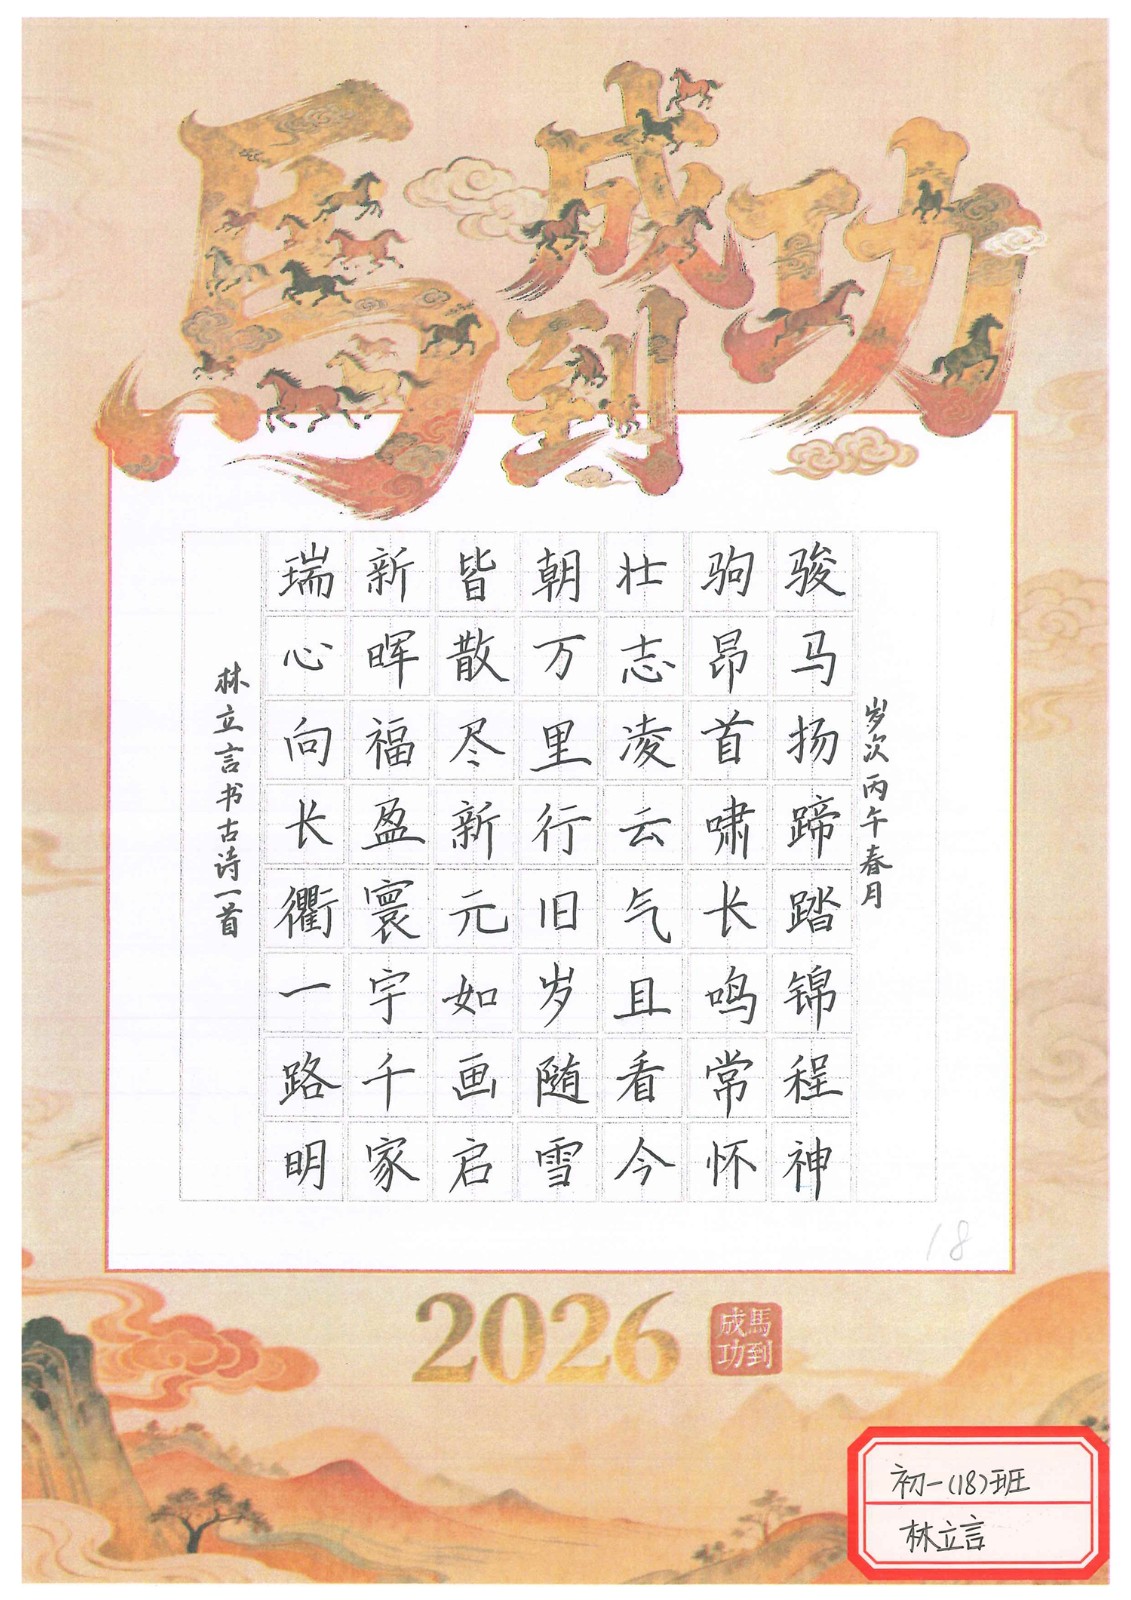 馬到成功
岁次丙午春月
骏马扬蹄踏锦程神
驹昂首啸长鸣常怀
壮志凌云气且看今
朝万里行旧岁随雪
皆散尽新元如画启
新晖福盈寰宇千家
瑞心向长衢一路明
林立言书古诗一首
18
2026
馬到
成功
初一(18)班
林立言